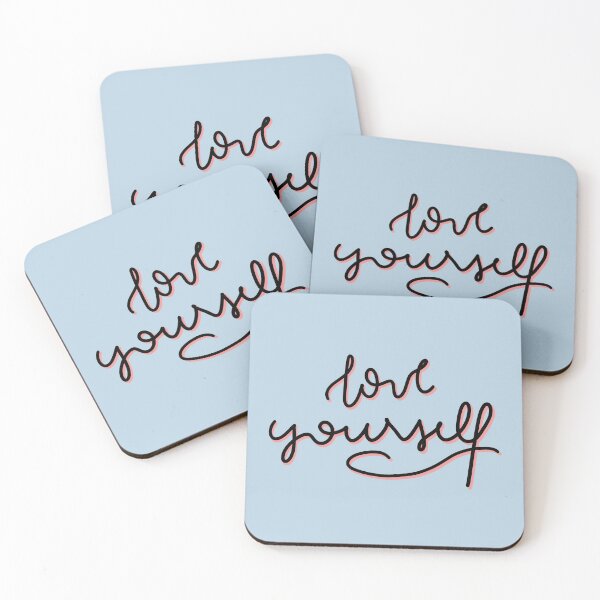 love
yourself
love
yourself
love
yourself
love
yourself